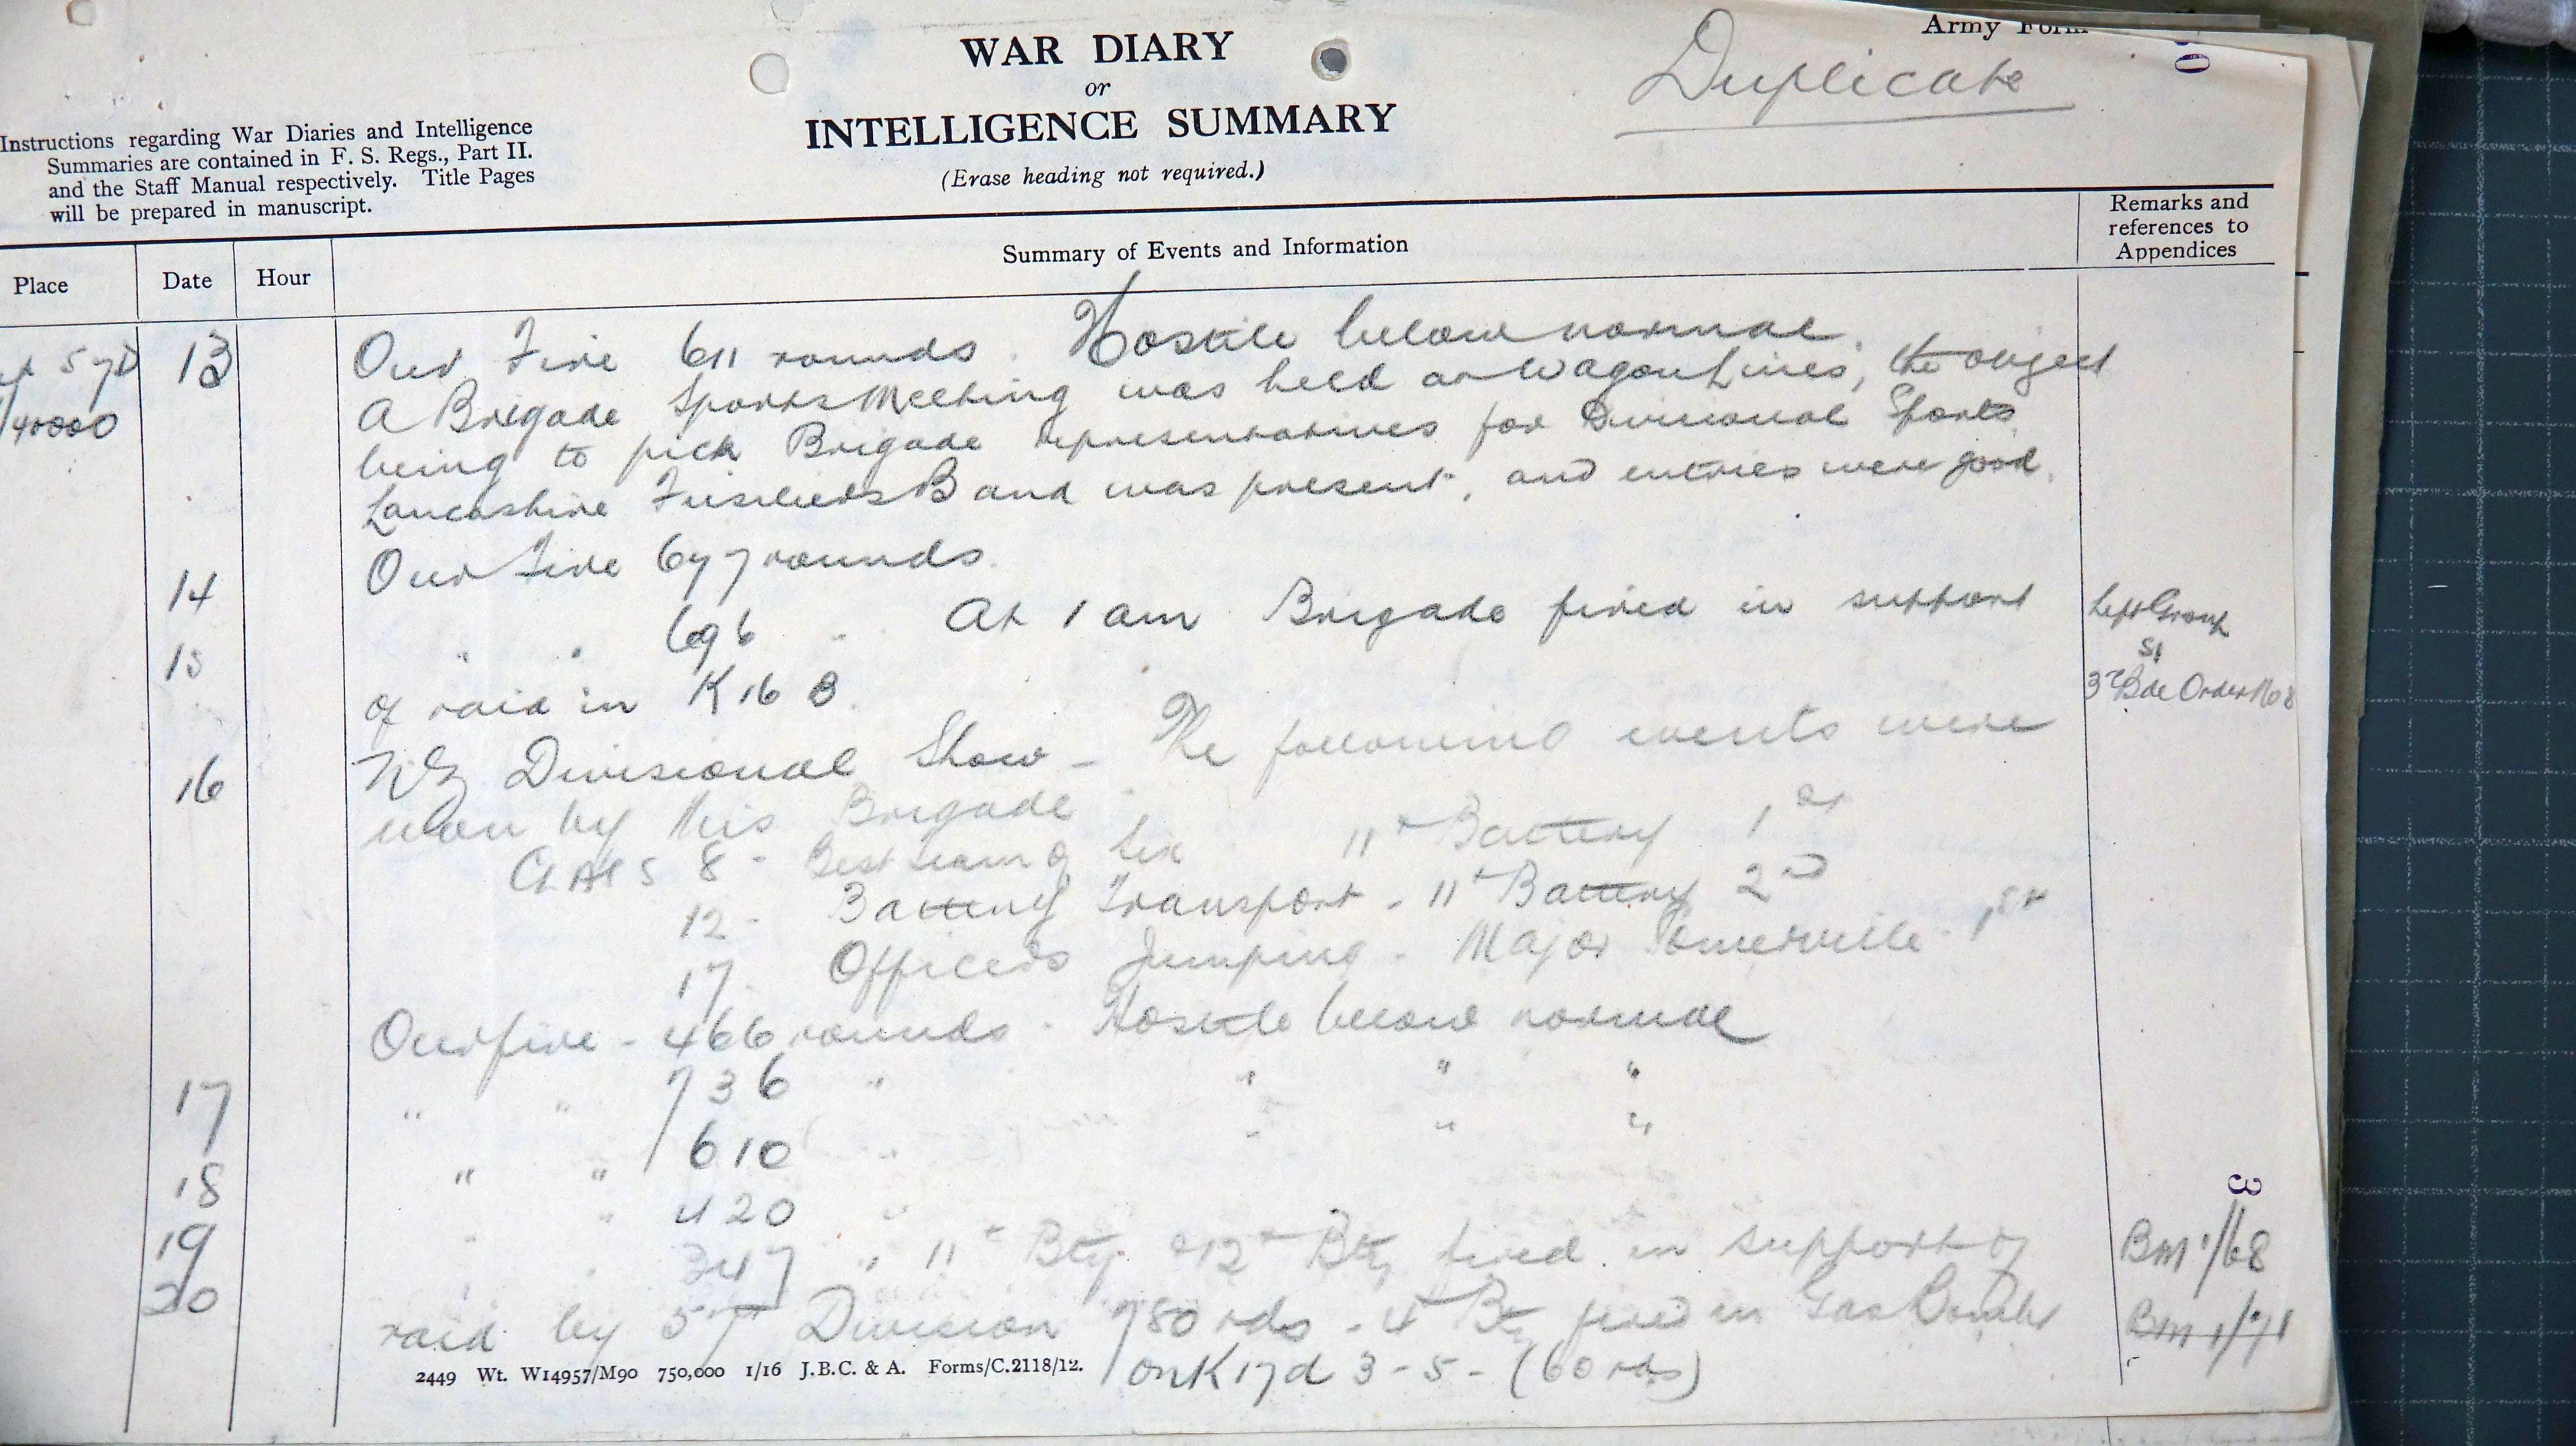 Army Form
Duplicate
WAR DIARY
or
INTELLIGENCE SUMMARY
(Erase heading not required.)
Instructions regarding War Diaries and Intelligence
Summaries are contained in F. S. Regs., Part II.
and the Staff Manual respectively. Title Pages
will be prepared in manuscript.
Place Date Hour Summary of Events and Information Remarks and
references to
Appendices
13 Our Fire 611 rounds. Hostile below normal.
A Brigade Sports Meeting was held at Wagon Lines, the object
/40000 being to pick Brigade representatives for Divisional Sports
Lancashire Fusiliers Band was present, and entries were good.
14 Our Fire 677 rounds.
15 " " 696 " At 1 am Brigade fired in support Left Group
of raid in K 16 B. 3rd Bde Order No 8
16 NZ Divisional Show - The following events were
won by this Brigade.
CLASS 8 - Best team of six 11th Battery 1st
12 - Battery Transport - 11th Battery 2nd
17. Officers Jumping - Major Somerville - 1st
Our fire - 466 rounds - Hostile below normal
17 " " 736 " " " "
18 " " 610 " " " "
19 " " 420 "
20 " " 347 " 11th Bty & 12th Bty fired in support of BM 1/68
raid by 57 Division 780 rds - 4th Bty fired in Gas Bombt BM 1/71
on K 17 d 3-5- (60 rds)
2449 Wt. W14957/M90 750,000 1/16 J.B.C. & A. Forms/C.2118/12.
3